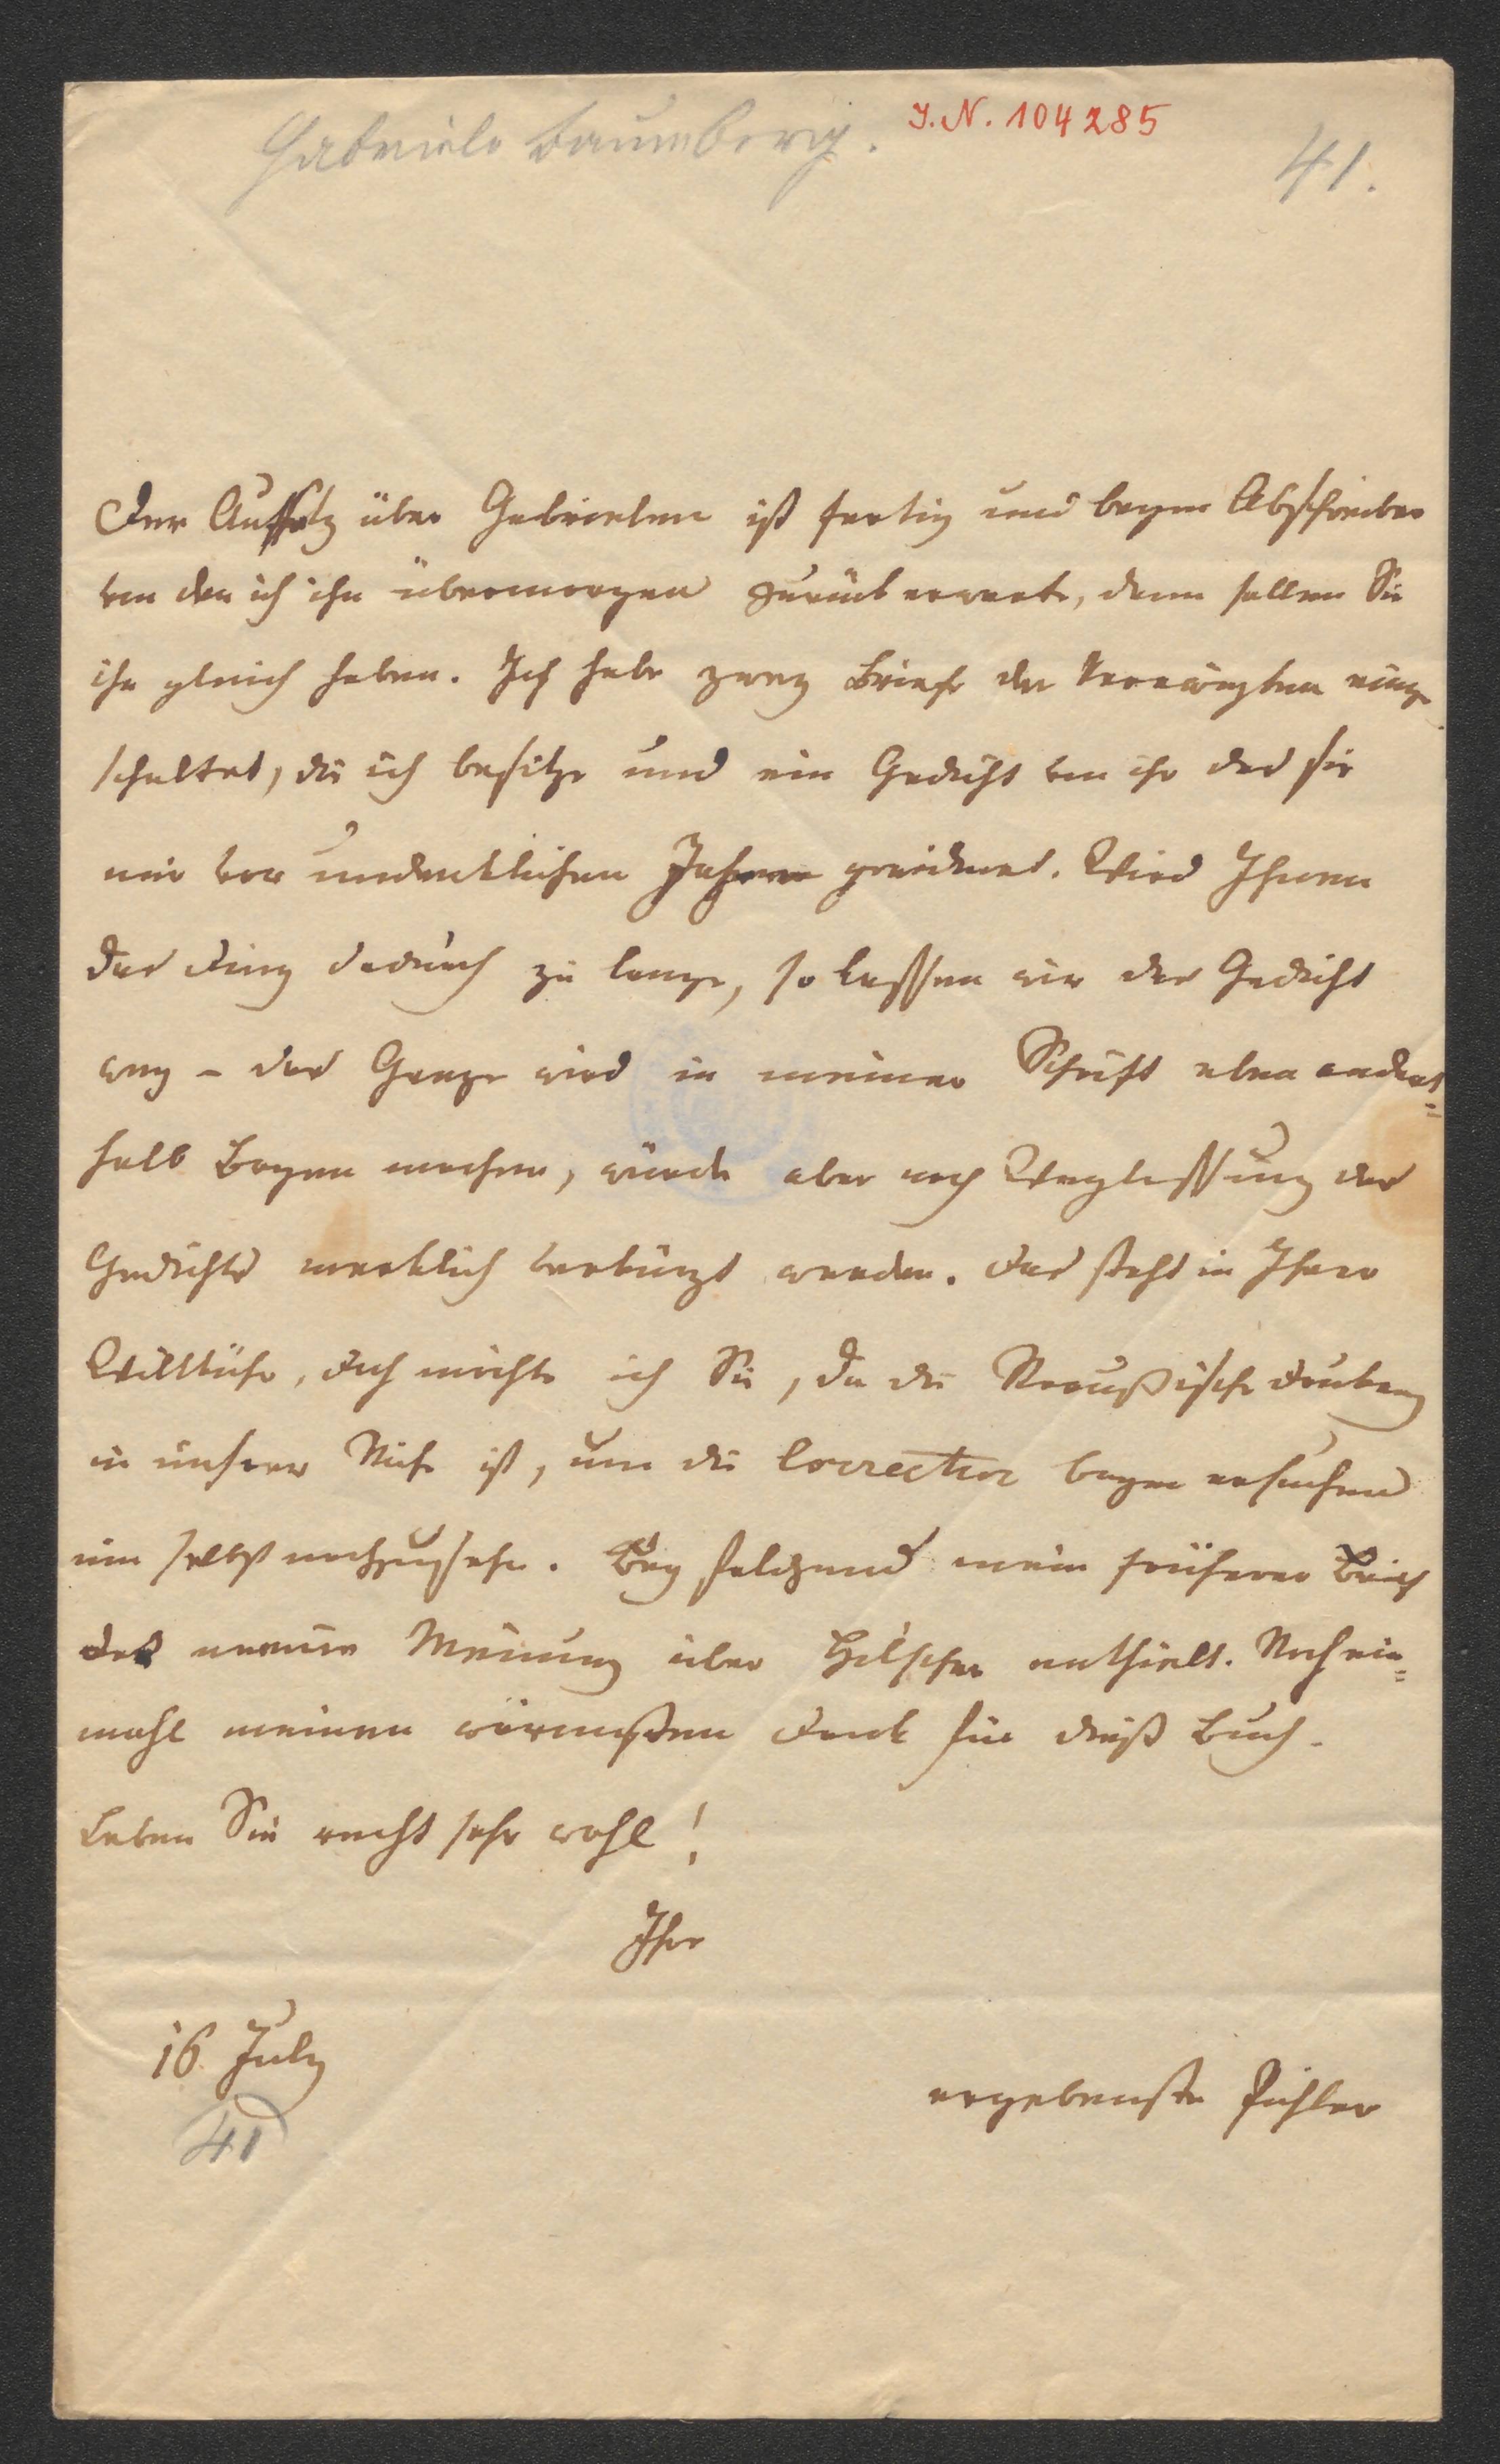 Gabriele Baumberg.
J.N. 104285
41.
Der Aufsatz über Gabrielen ist fertig und beym Abschreiber
von dem ich ihn übermorgen zurück erwarte, dann sollen Sie
ihn gleich haben. Ich habe zwey Briefe der Verewigten einge
schaltet, die ich besitze und ein Gedicht von ihr das sie
mir vor undenklichen Jahren gewidmet. Wird Ihnen
das Ding dadurch zu lange, so lassen wir das Gedicht
weg – das Ganze wird in meiner Schrift etwa andert=
halb Bogen machen, würde aber nach Weglassung des
Gedichts merklich verkürzt werden. Das steht in Ihrer
Willkühr, doch möchte ich Sie, da die Straußische Druckerey
in unserer Nähe ist, um die Correctur bogen ersuchen
um selbst nachzusehen. Bey folgend mein früherer Brief
der meine Meinung über Hilscher enthielt. Noch ein=
mahl meinen wärmsten Dank für dieß Buch.
Leben Sie recht sehr wohl!
Ihre
16 July
41
ergebenste Pichler